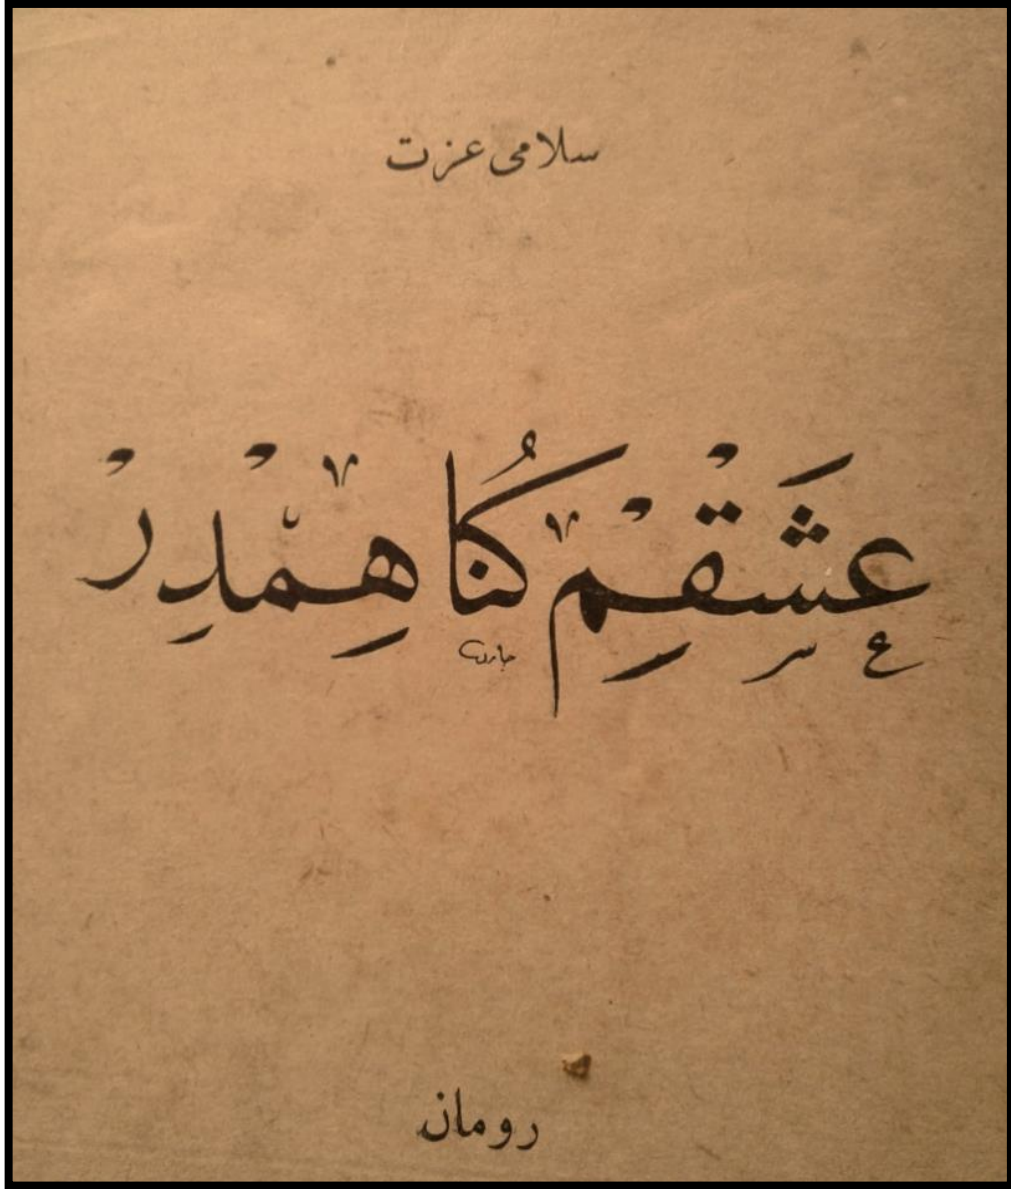 سلامی عزت
عشقم کناهمدر
رومان